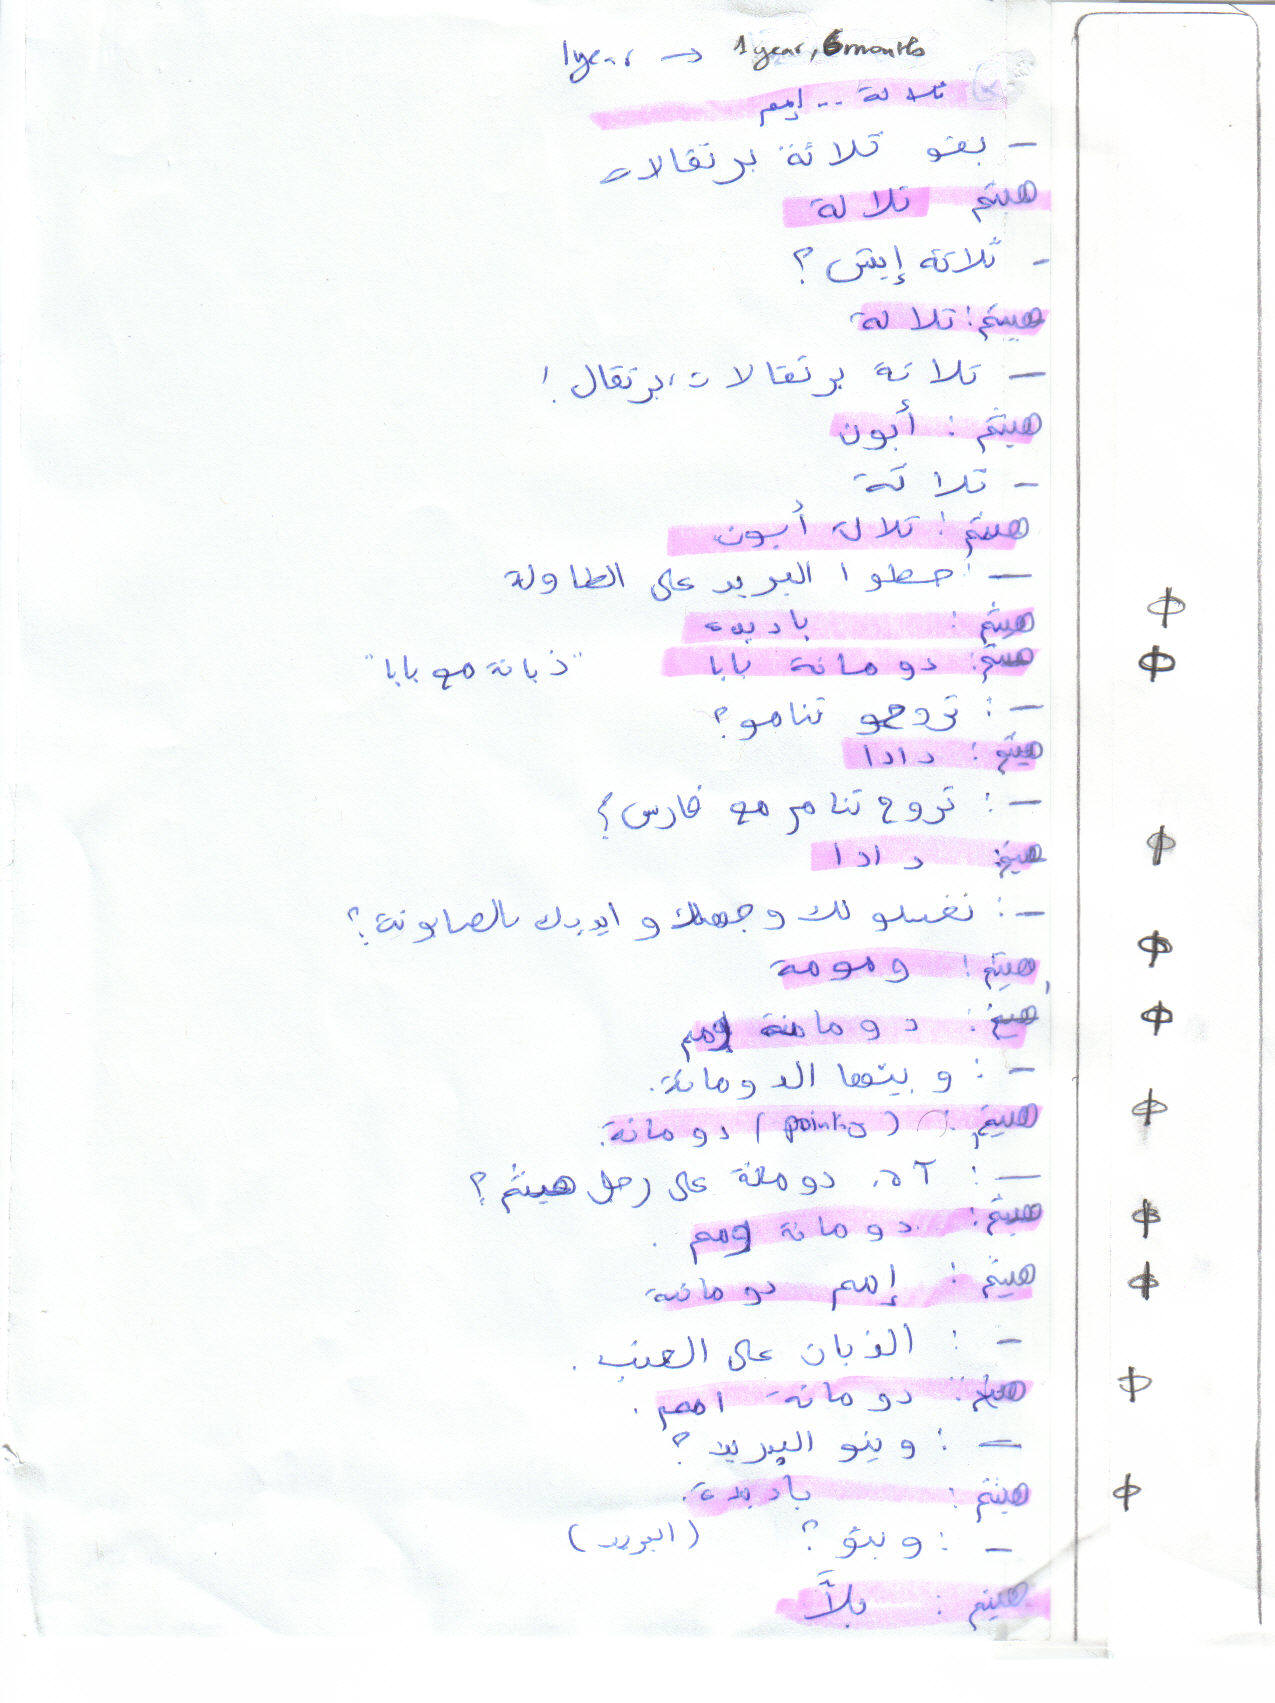 1year → 1 year, 6 months
تلالة ... إمم
- بغو تلاثة برتقالات
هيثم تلالة
- ثلاثة إيش ؟
هيثم : تلالة
- تلاتة برتقالات، برتقال !
هيثم : أبون
- تلاتة
هيثم : تلالة أبون
- : حطوا البريد على الطاولة
هيثم : باديدة
هيثم : دومانة بابا "ذبانة مع بابا"
- : تروحو تنامو ؟
هيثم : دادا
- : تروح تنام مع فارس ؟
هيثم : دادا
- : نغسلو لك وجهك و ايديك بالصابونة ؟
هيثم : ومومة
هيثم : دومانة إمم
- : وينها الدومانة.
هيثم : (pointing) دومانة.
- : آه. دومانة على رجل هيثم ؟
هيثم : دومانة إمم .
هيثم : إمم دومانة
- : الذبان على العنب .
هيثم : دومانة امم .
- : وينو البريد ؟
هيثم : باديدة .
- : وينو ؟ (البريد)
هيثم : بلاَّ